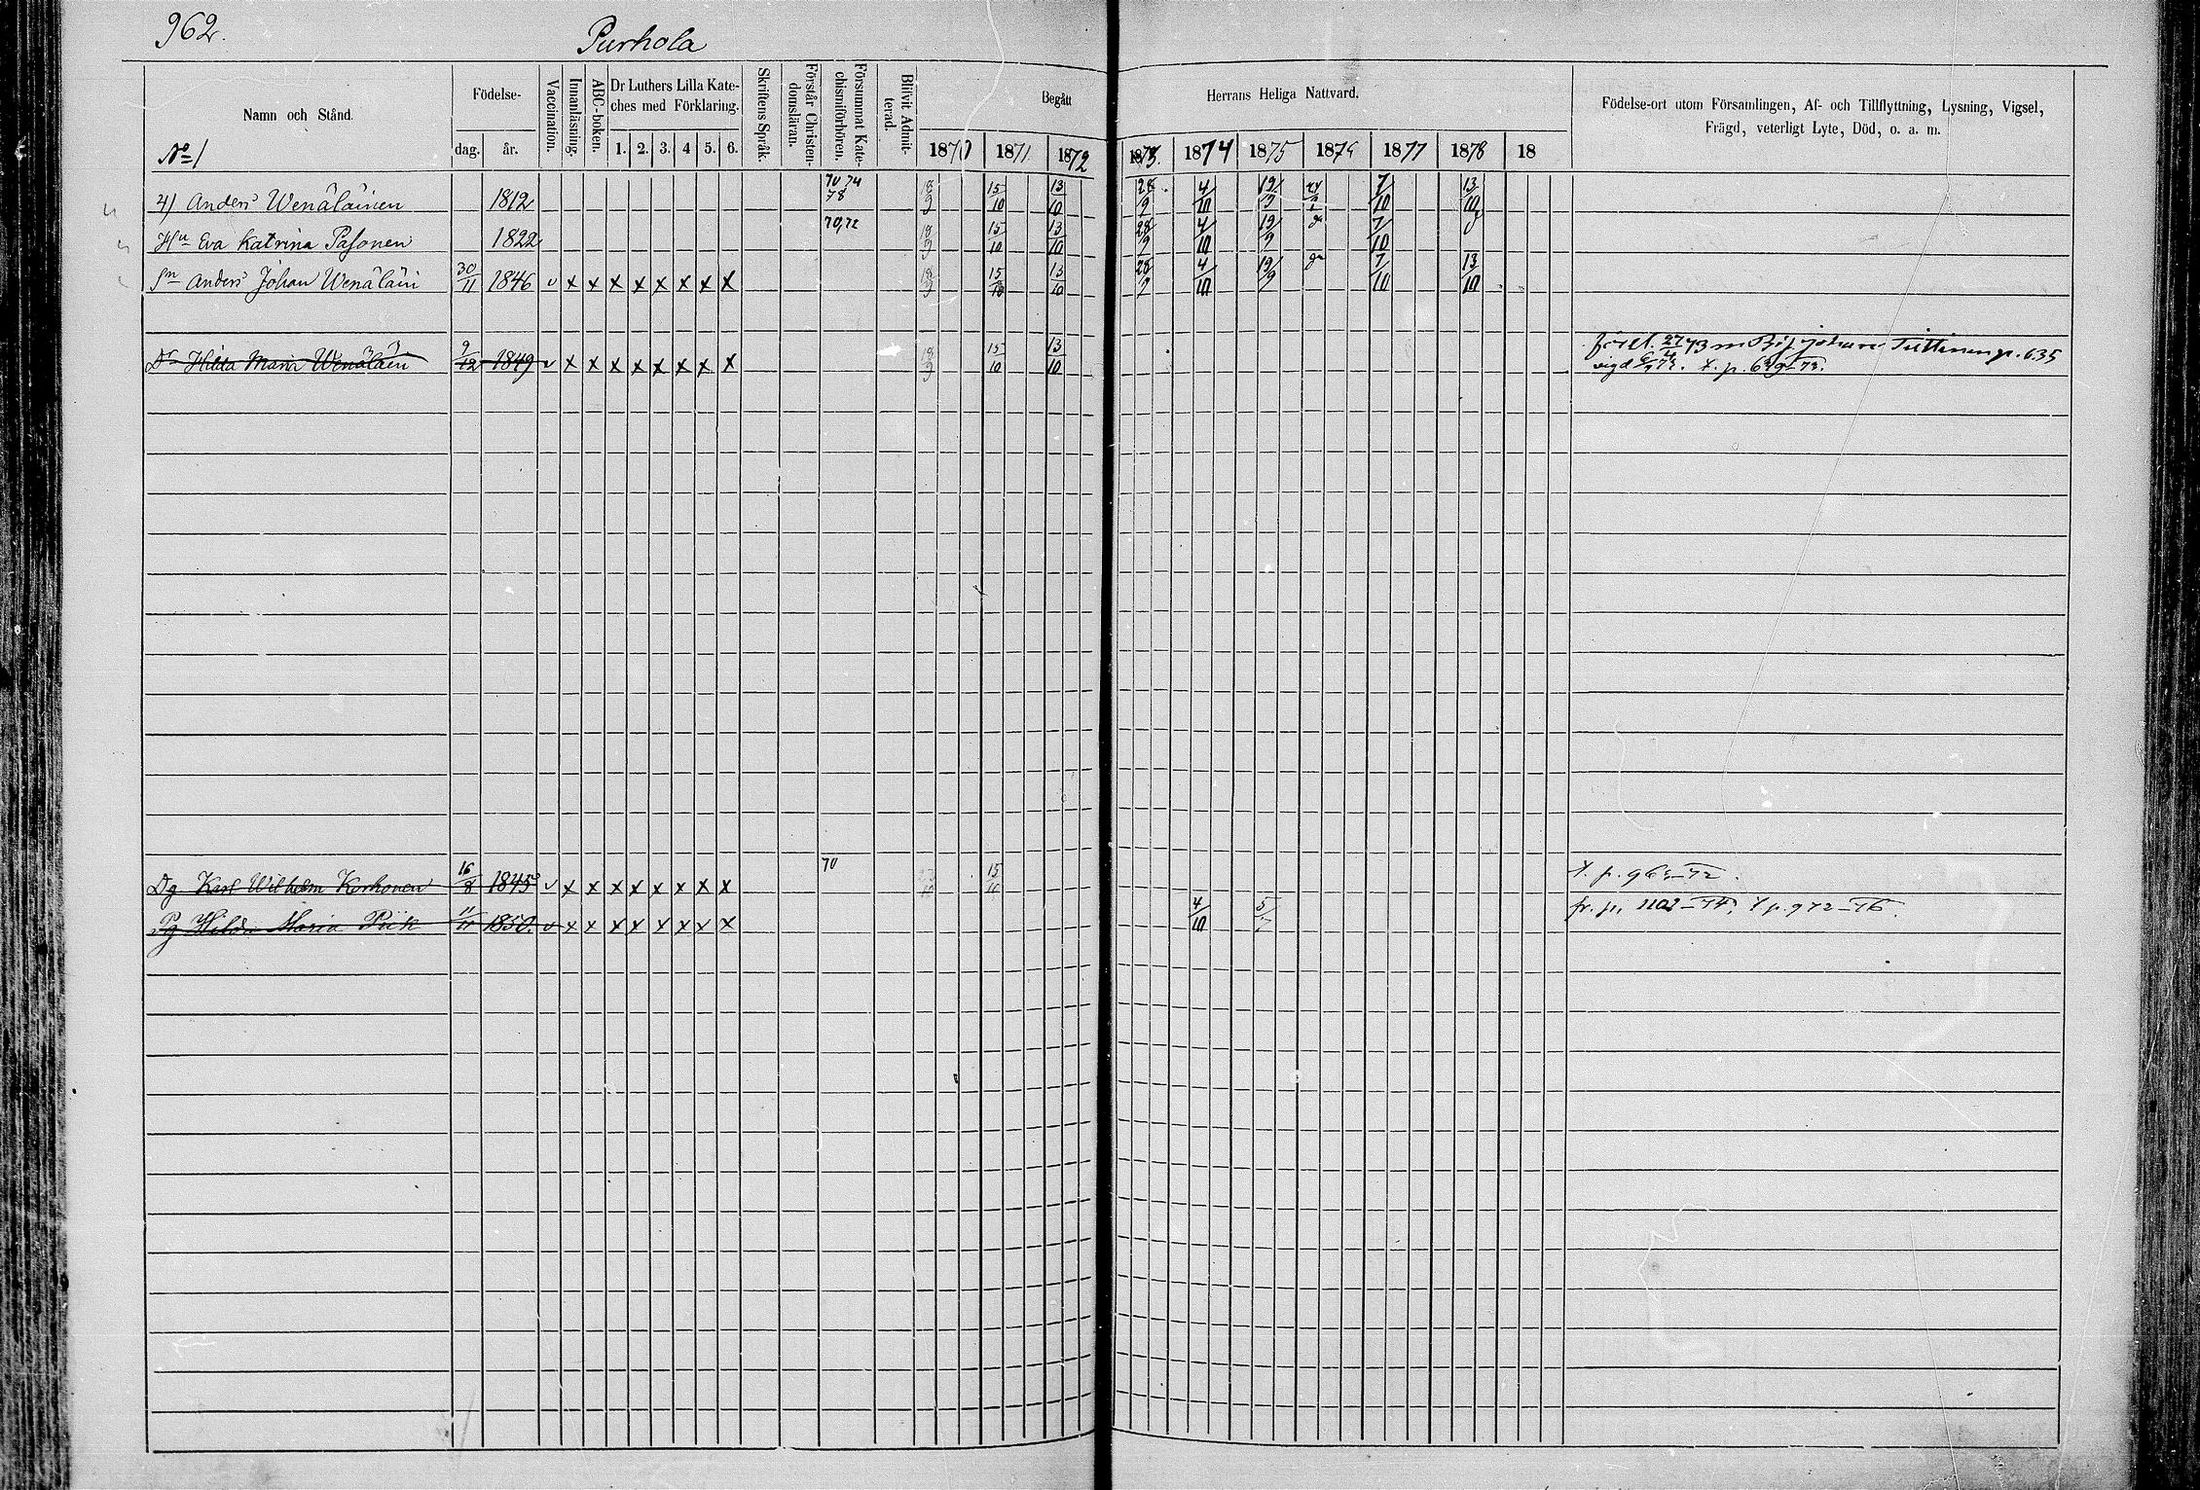 962.
Purhola
Namn och Stånd.
No 1
Födelse-
dag. år.
Vaccination.
Innanläsning.
ABC-boken.
Dr Luthers Lilla Kate-
ches med Förklaring.
1. 2. 3. 4 5. 6.
Skriftens Språk.
Förstår Christen-
domsläran.
Försummat Kate-
chismiförhören.
Blifvit Admit-
terad.
Begått Herrans Heliga Nattvard.
1870 1871 1872 1873. 1874 1875 1876 1877 1878 18
Födelse-ort utom Församlingen, Af- och Tillflyttning, Lysning, Vigsel,
Frägd, veterligt Lyte, Död, o. a. m.
4) Anders Wenäläinen 1812 70, 74 78 18/9 15/10 13/10 28/9 4/10 19/9 7/10 13/10
Hu Eva Katrina Pasonen 1822 70,72 18/9 15/10 13/10 28/9 4/10 19/9 7/10
Sn Anders Johan Wenäläin 30/11 1846 v x x x x x x x x 18/9 15/10 13/10 28/9 4/10 19/9 7/10 13/10
Dr Hilda Maria Wenäläin 9/12 1849 v x x x x x x x x 18/9 15/10 13/10 Johan p. 635
vigd
Dg Karl Wilhelm Korhonen 16/8 1845 v x x x x x x x x 70 15/10
Pg Hilda Maria Piik 11/11 1850. v x x x x x x x x 4/10 5/7 fr. p. 1102-74, t p. 972-76.